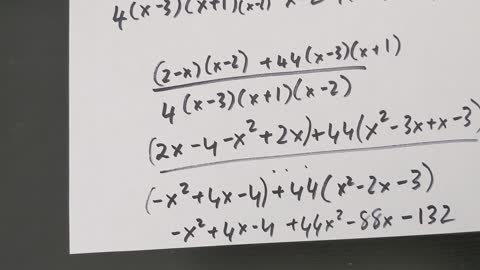 4(x-3)(x+1)(x-1)
(2-x)(x-2) + 44(x-3)(x+1)
4(x-3)(x+1)(x-2)
(2x-4-x²+2x)+44(x²-3x+x-3)
(-x²+4x-4)+44(x²-2x-3)
-x²+4x-4+44x²-88x-132